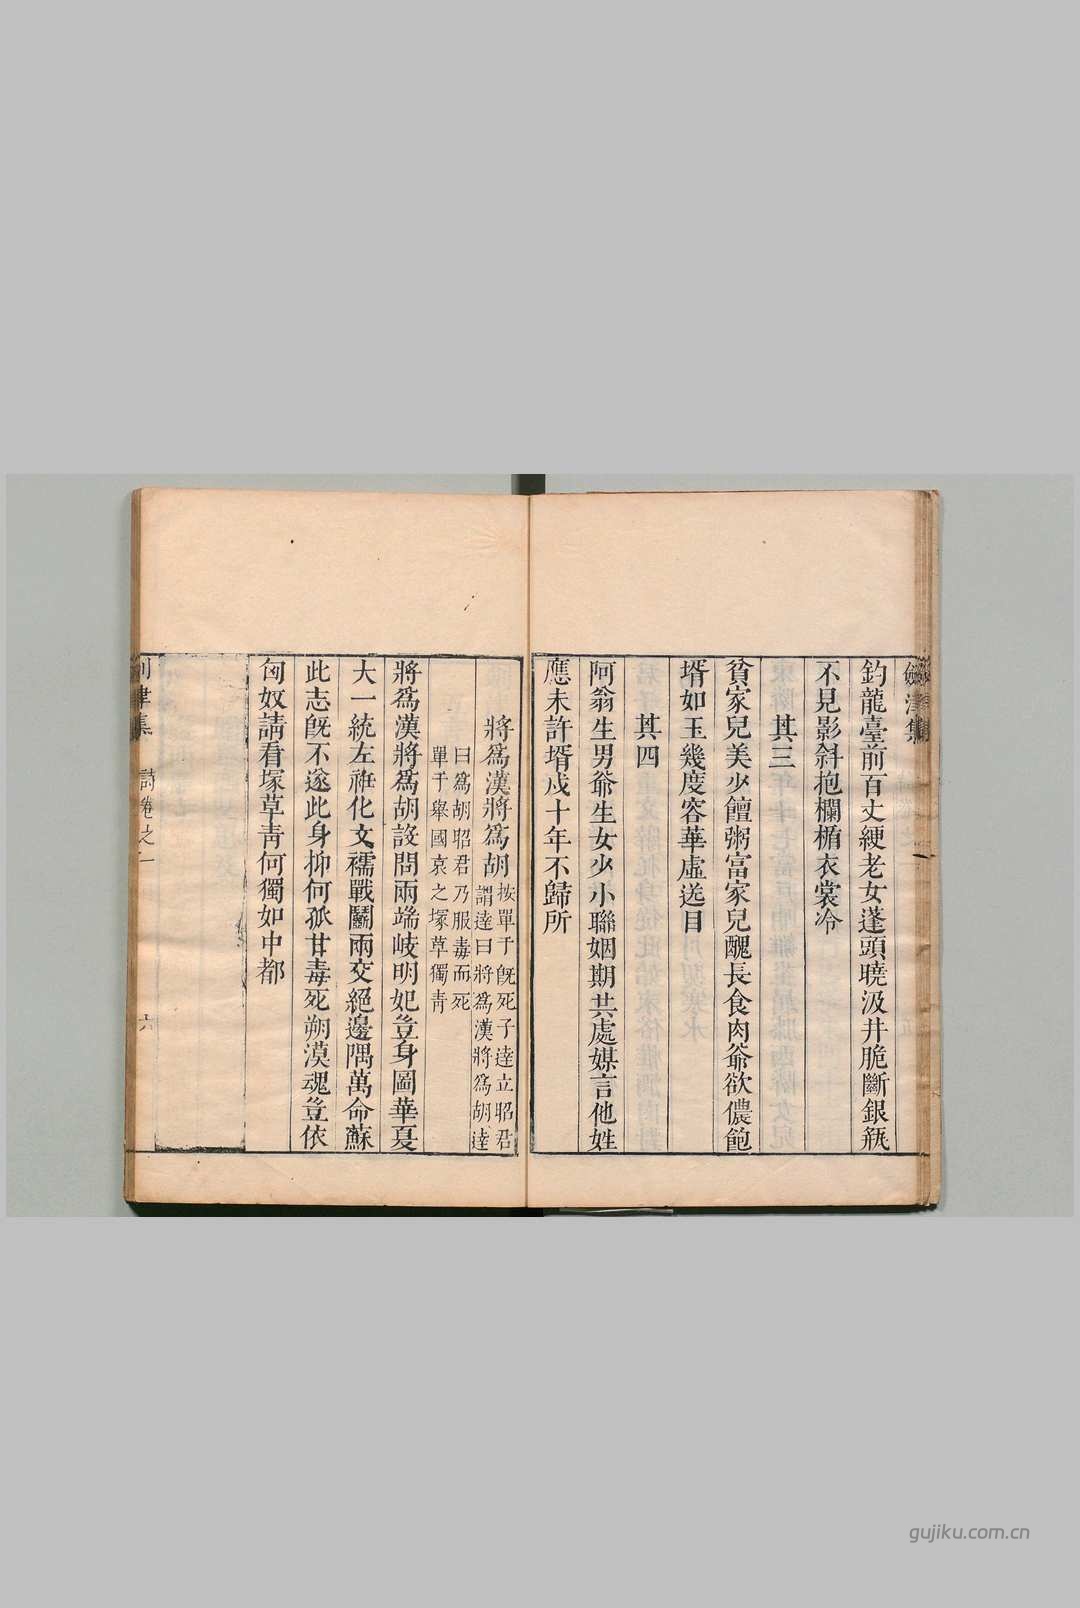 釣龍臺前百丈綆老女蓬頭曉汲井脆斷銀瓶
不見影斜抱欄楯衣裳冷
其三
貧家兒美少饘粥富家兒醜長食肉爺欲儂飽
壻如玉幾度容華虛送目
其四
阿翁生男爺生女少小聯姻期共處媒言他姓
應未許壻戍十年不歸所
將爲漢將爲胡
按單于旣死子達立昭君
謂達曰將爲漢將爲胡達
曰爲胡昭君乃服毒而死
單于舉國哀之塚草獨青
將爲漢將爲胡設問兩端岐明妃豈身圖華夏
大一統左袵化文襦戰鬭兩交絕邊隅萬命蘇
此志旣不遂此身抑何孤甘毒死朔漠魂豈依
匈奴請看塚草青何獨如中都
津集
詩卷之一
六
gujiku.com.cn